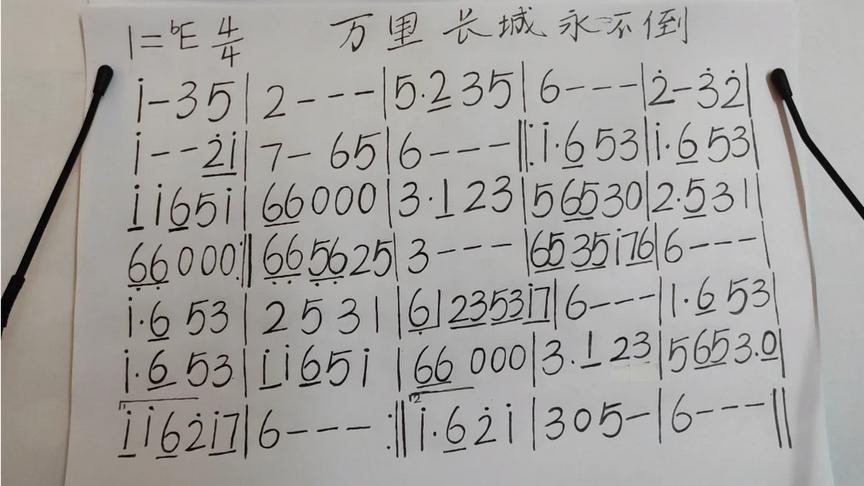 1=ᵇE 4/4 万里长城永不倒
i̇-35|2---|5·2̲35|6---|2̇-3̇2̇|
i̇--2̲̇i̲̇|7-65|6---‖:i̇·6̲53|i̇·6̲53|
i̲̇i̇6̲5i̇|6̲6̲000|3·1̲23|56̲5̲30|2·5̲31|
6̲̣6̲̣000:‖6̲̣6̲̣5̲̣6̲̣25|3---|6̲5̲3̲5̲i̇7̲6̲|6---|
i̇·6̲53|2531|6̲̣12̲3̲5̲3̲i̲̇7̲|6---|1·6̲53|
i̇·6̲53|i̲̇i̇6̲5i̇|6̲6̲000|3.1̲2̲3̲|56̲5̲3.0̲|
1 2
i̲̇i̇6̲2̇i̲̇7̲|6---:‖i̇·6̲2̇i̇|305-|6---‖